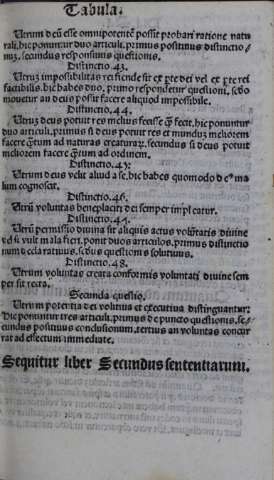 Tabula.
Utrum deū esse omnipotentē possit probari ratione natu
rali, hic ponuntur duo articuli, primus positiuus distinctio/
nis, secundus responsiuus questionis.
Distinctio. 43.
Utruz impossibilitas rei fiende sit ex pte dei vel ex pte rei
factibilis. hic babes duo, primo respondetur questioni, scdo
mouetur an deus possit facere aliquod impossibile.
Distinctio. 44.
Utruz deus potuit res melius fecisse q̄ fecit, hic ponuntur
duo articuli, primus si deus potuit res et munduz meliorem
facere q̄tum ad naturas creaturaꝝ. secundus si deus potuit
meliorem facere q̄tum ad ordinem.
Distinctio. 45.
Utrum deus velit aliud a se, hic babes quomodo de⁹ ma
lum cognoscat.
Distinctio. 46.
Utrū voluntas beneplaciti dei semper impleatur.
Distinctio. 47.
Utrū permissio diuina sit aliquis actus volūtatis diuine
vt vult mala fieri. ponit duos articulos, primus distinctio
num declaratiuus, scdus questionis solutiuus.
Distinctio. 48.
Utrum voluntas creata conformis voluntati diuine sem
per sit recta.
Secunda questio.
Utrum potentia dei volitiua et executiua distinguantur:
Hic ponuntur tres articuli, primus de puncto questionis, se/
cundus positiuus conclusionum, tertius an voluntas concur
rat ad effectum immediate.
Sequitur liber Secundus sententiarum.